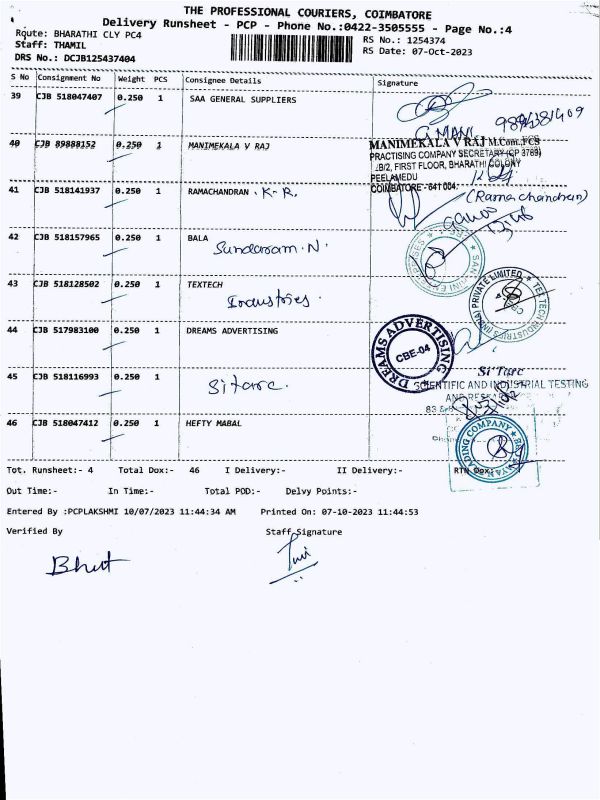 THE PROFESSIONAL COURIERS, COIMBATORE
Delivery Runsheet - PCP - Phone No.:0422-3505555 - Page No.:4
Route: BHARATHI CLY PC4
Staff: THAMIL
DRS No.: DCJB125437404
RS No.: 1254374
RS Date: 07-Oct-2023
S No Consignment No Weight PCS Consignee Details Signature
39 CJB 518047407 0.250 1 SAA GENERAL SUPPLIERS
G MANI
40 CJB 89888152 0.250 1 MANIMEKALA V RAJ
MANIMEKALA V RAJ M.Com.,FCS
PRACTISING COMPANY SECRETARY (CP 3769)
FIRST FLOOR, BHARATHI COLONY
PEELAMEDU
COIMBATORE - 641 004.
41 CJB 518141937 0.250 1 RAMACHANDRAN . K. R.
(Ramachandran)
42 CJB 518157965 0.250 1 BALA
Sundaram. N.
43 CJB 518128502 0.250 1 TEXTECH
Industries.
44 CJB 517983100 0.250 1 DREAMS ADVERTISING
DREAMS ADVERTISING
CBE-04
45 CJB 518116993 0.250 1
Sitarc.
Si'Tarc
SCIENTIFIC AND INDUSTRIAL TESTING
46 CJB 518047412 0.250 1 HEFTY MABAL
Tot. Runsheet:- 4 Total Dox:- 46 I Delivery:- II Delivery:- RTN Dox:
Out Time:- In Time:- Total POD:- Delvy Points:-
Entered By :PCPLAKSHMI 10/07/2023 11:44:34 AM Printed On: 07-10-2023 11:44:53
Verified By Staff Signature